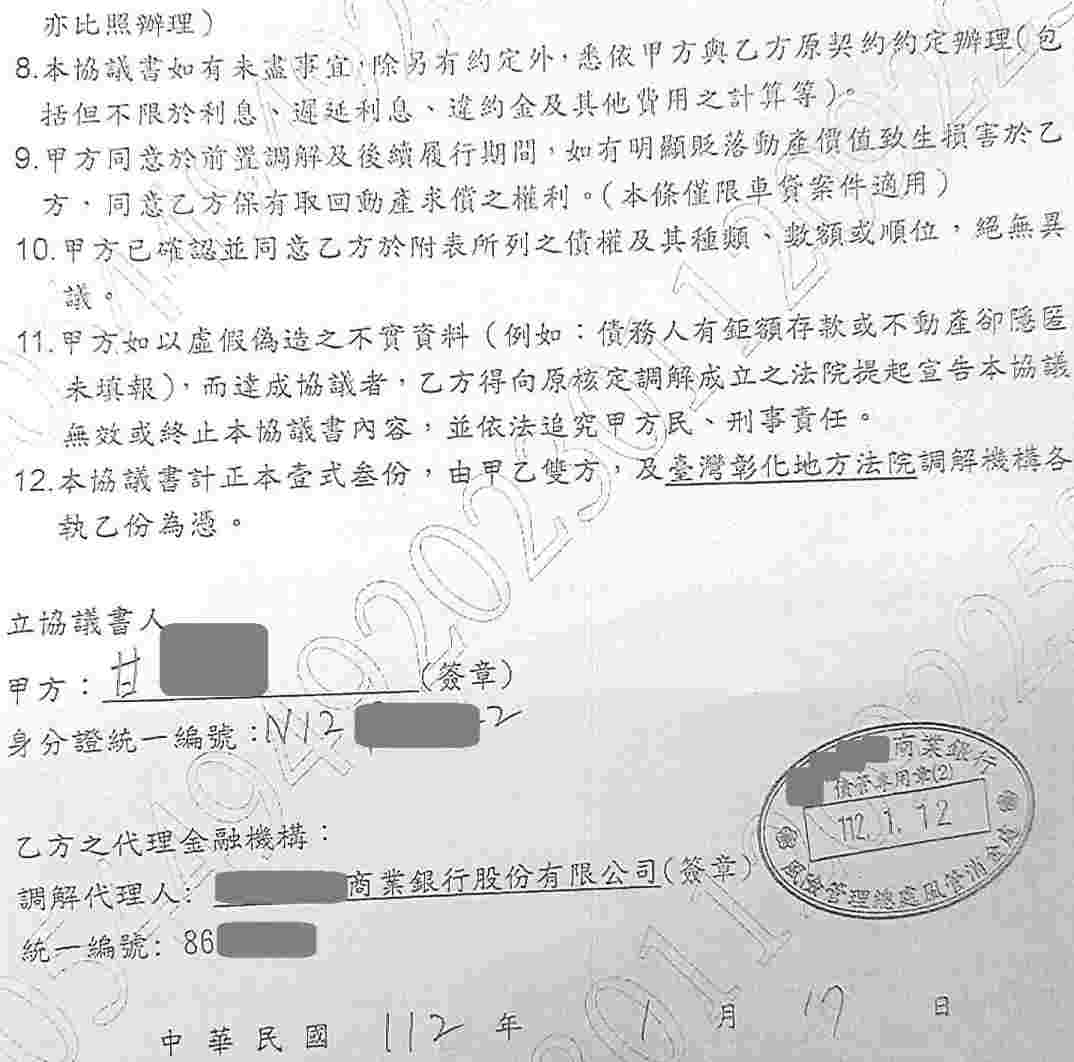 亦比照辦理)
8.本協議書如有未盡事宜,除另有約定外,悉依甲方與乙方原契約約定辦理(包
括但不限於利息、遲延利息、違約金及其他費用之計算等)。
9.甲方同意於前置調解及後續履行期間,如有明顯貶落動產價值致生損害於乙
方,同意乙方保有取回動產求償之權利。(本條僅限車貸案件適用)
10.甲方已確認並同意乙方於附表所列之債權及其種類、數額或順位,絕無異
議。
11.甲方如以虛假偽造之不實資料(例如:債務人有鉅額存款或不動產卻隱匿
未填報),而達成協議者,乙方得向原核定調解成立之法院提起宣告本協議
無效或終止本協議書內容,並依法追究甲方民、刑事責任。
12.本協議書計正本壹式叁份,由甲乙雙方,及臺灣彰化地方法院調解機構各
執乙份為憑。
立協議書人
甲方:甘 (簽章)
身分證統一編號:N12 2
乙方之代理金融機構:
調解代理人: 商業銀行股份有限公司(簽章)
統一編號: 86
商業銀行
債管專用章(2)
112. 1. 12
風險管理總處風管消金處
中華民國 112 年 1 月 17 日